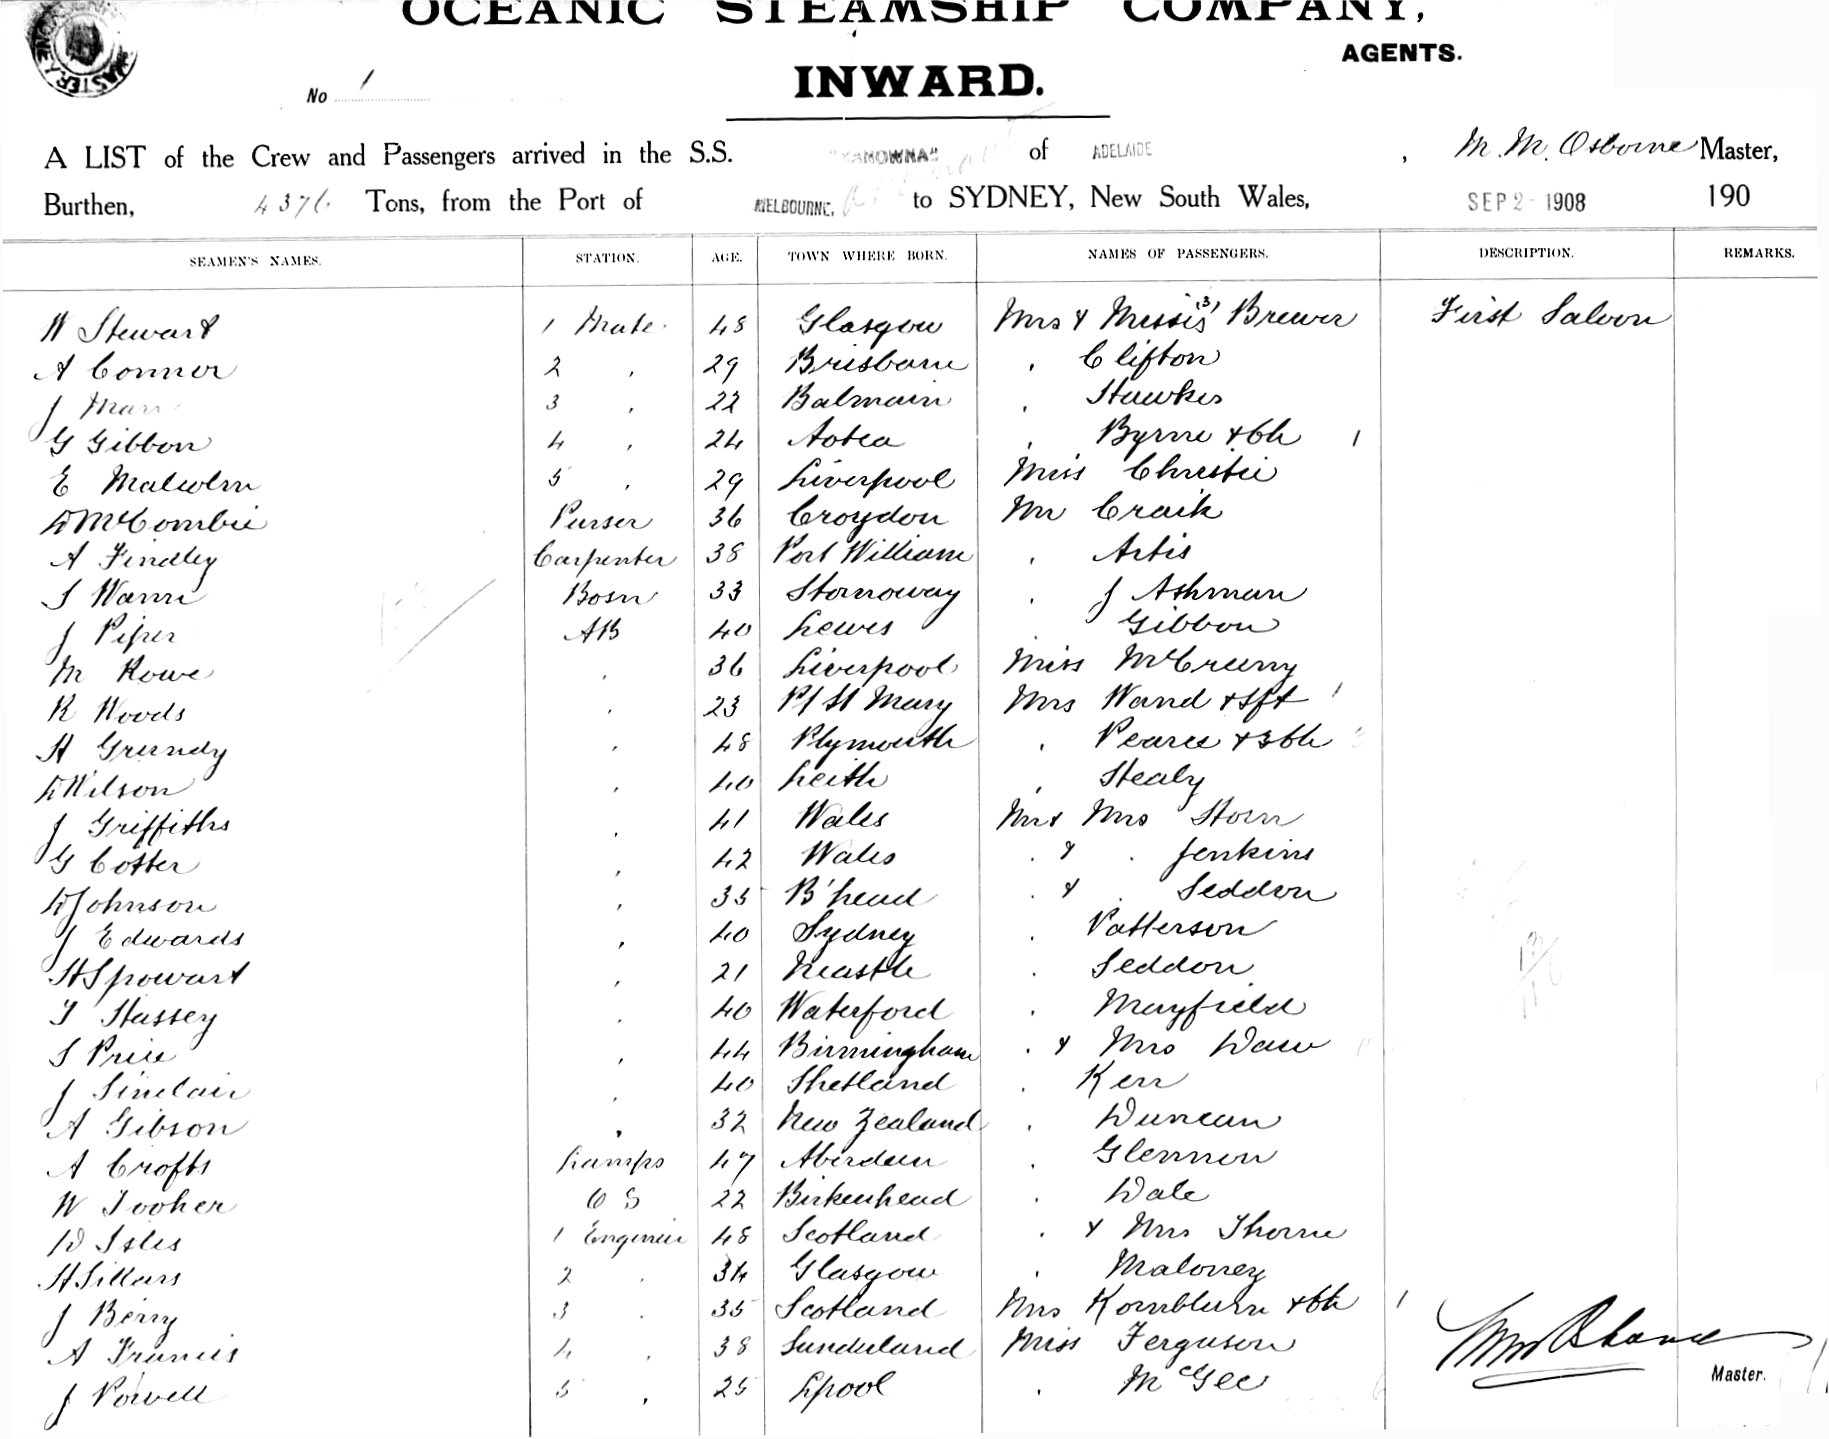 OCEANIC STEAMSHIP COMPANY,
AGENTS.
INWARD.
No 1
A LIST of the Crew and Passengers arrived in the S.S. "KANOWNA" of ADELAIDE , M. M. Osborne Master,
Burthen, 4376 Tons, from the Port of MELBOURNE, to SYDNEY, New South Wales, SEP 2 - 1908 190
SEAMEN'S NAMES. STATION. AGE. TOWN WHERE BORN. NAMES OF PASSENGERS. DESCRIPTION. REMARKS.
W Stewart 1 Mate 48 Glasgow Mrs & Misses (3) Brewer First Saloon
A Conner 2 , 29 Brisbane . Clifton
J Marr 3 , 22 Balmain . Hawkes
G Gibbon 4 , 24 Aotea . Byrne & Ch 1
E Malcolm 5 , 29 Liverpool Miss Christie
D McCombie Purser 36 Croydon Mr Craik
A Findley Carpenter 38 Port William . Artis
S Warn Bosn 33 Stornoway . J Ashman
J Piper AB 40 Lewis . Gibbon
M Rowe . 36 Liverpool Miss McCreery
R Woods . 23 Pt St Mary Mrs Wand & Sft 1
H Grundy . 48 Plymouth . Pearce & 3 Ch 3
D Wilson , 40 Leith , Healy
J Griffiths , 41 Wales Mr & Mrs Storr
G Cotter , 42 Wales . & . Jenkins
D Johnson , 35 B'head . & . Seddon
J Edwards , 40 Sydney . Patterson
H Spowart , 21 Ncastle . Seddon
T Hassey . 40 Waterford . Mayfield
S Price , 44 Birmingham . & Mrs Daw
J Sinclair , 40 Shetland . Kerr
A Gibson , 32 New Zealand . Duncan
A Crofts Lamps 47 Aberdeen . Glennon
W Tooher O S 22 Birkenhead . Dale
D Isles 1 Engineer 48 Scotland . & Mrs Thorne
H Sillars 2 . 34 Glasgow . Maloney
J Berry 3 . 35 Scotland Mrs Kornblum & Ch 1
A Francis 4 , 38 Sunderland Miss Ferguson
J Powell 5 , 25 Lpool . McGee
Master.